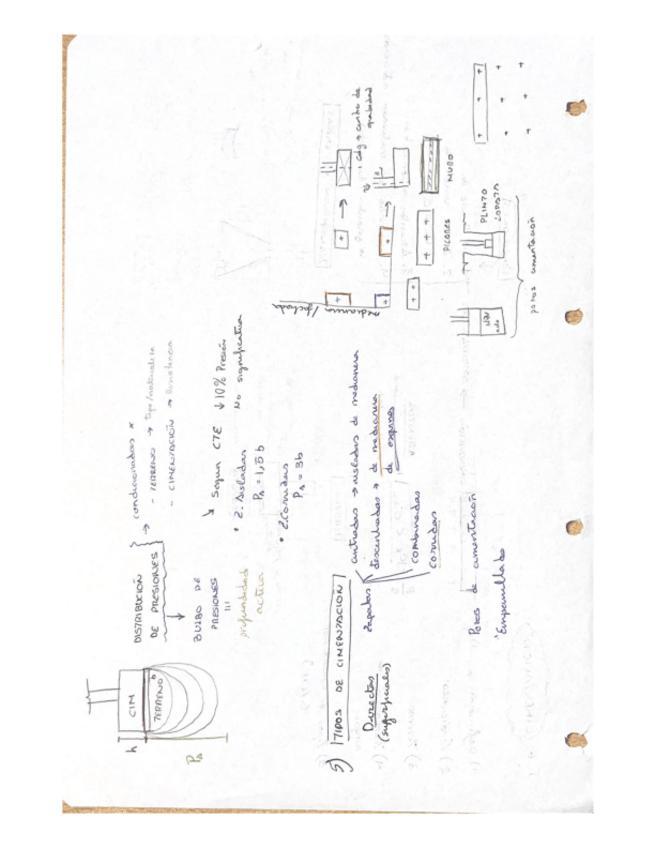 h
CIM
TERRENO
b
PA
DISTRIBUCIÓN
DE PRESIONES
→ condicionadas x
- TERRENO → tipo/naturaleza
- CIMENTACIÓN → Resistencia
BULBO DE
PRESIONES
profundidad
activa
Segun CTE ↓10% Presión
No significativa
• Z. Aisladas
PA = 1,5 b
• Z. Corridas
PA = 3b
5) TIPOS DE CIMENTACIÓN
Directas
(superficiales)
Zapatas
centradas → aisladas de medianera
descentradas → de medianera
de esquina
combinadas
corridas
Pozos de cimentación
Emparrillado
medianera / fachada
cdg → centro de
gravedad
PILARES
MURO
PLINTO
ZAPATA
pozos cimentación